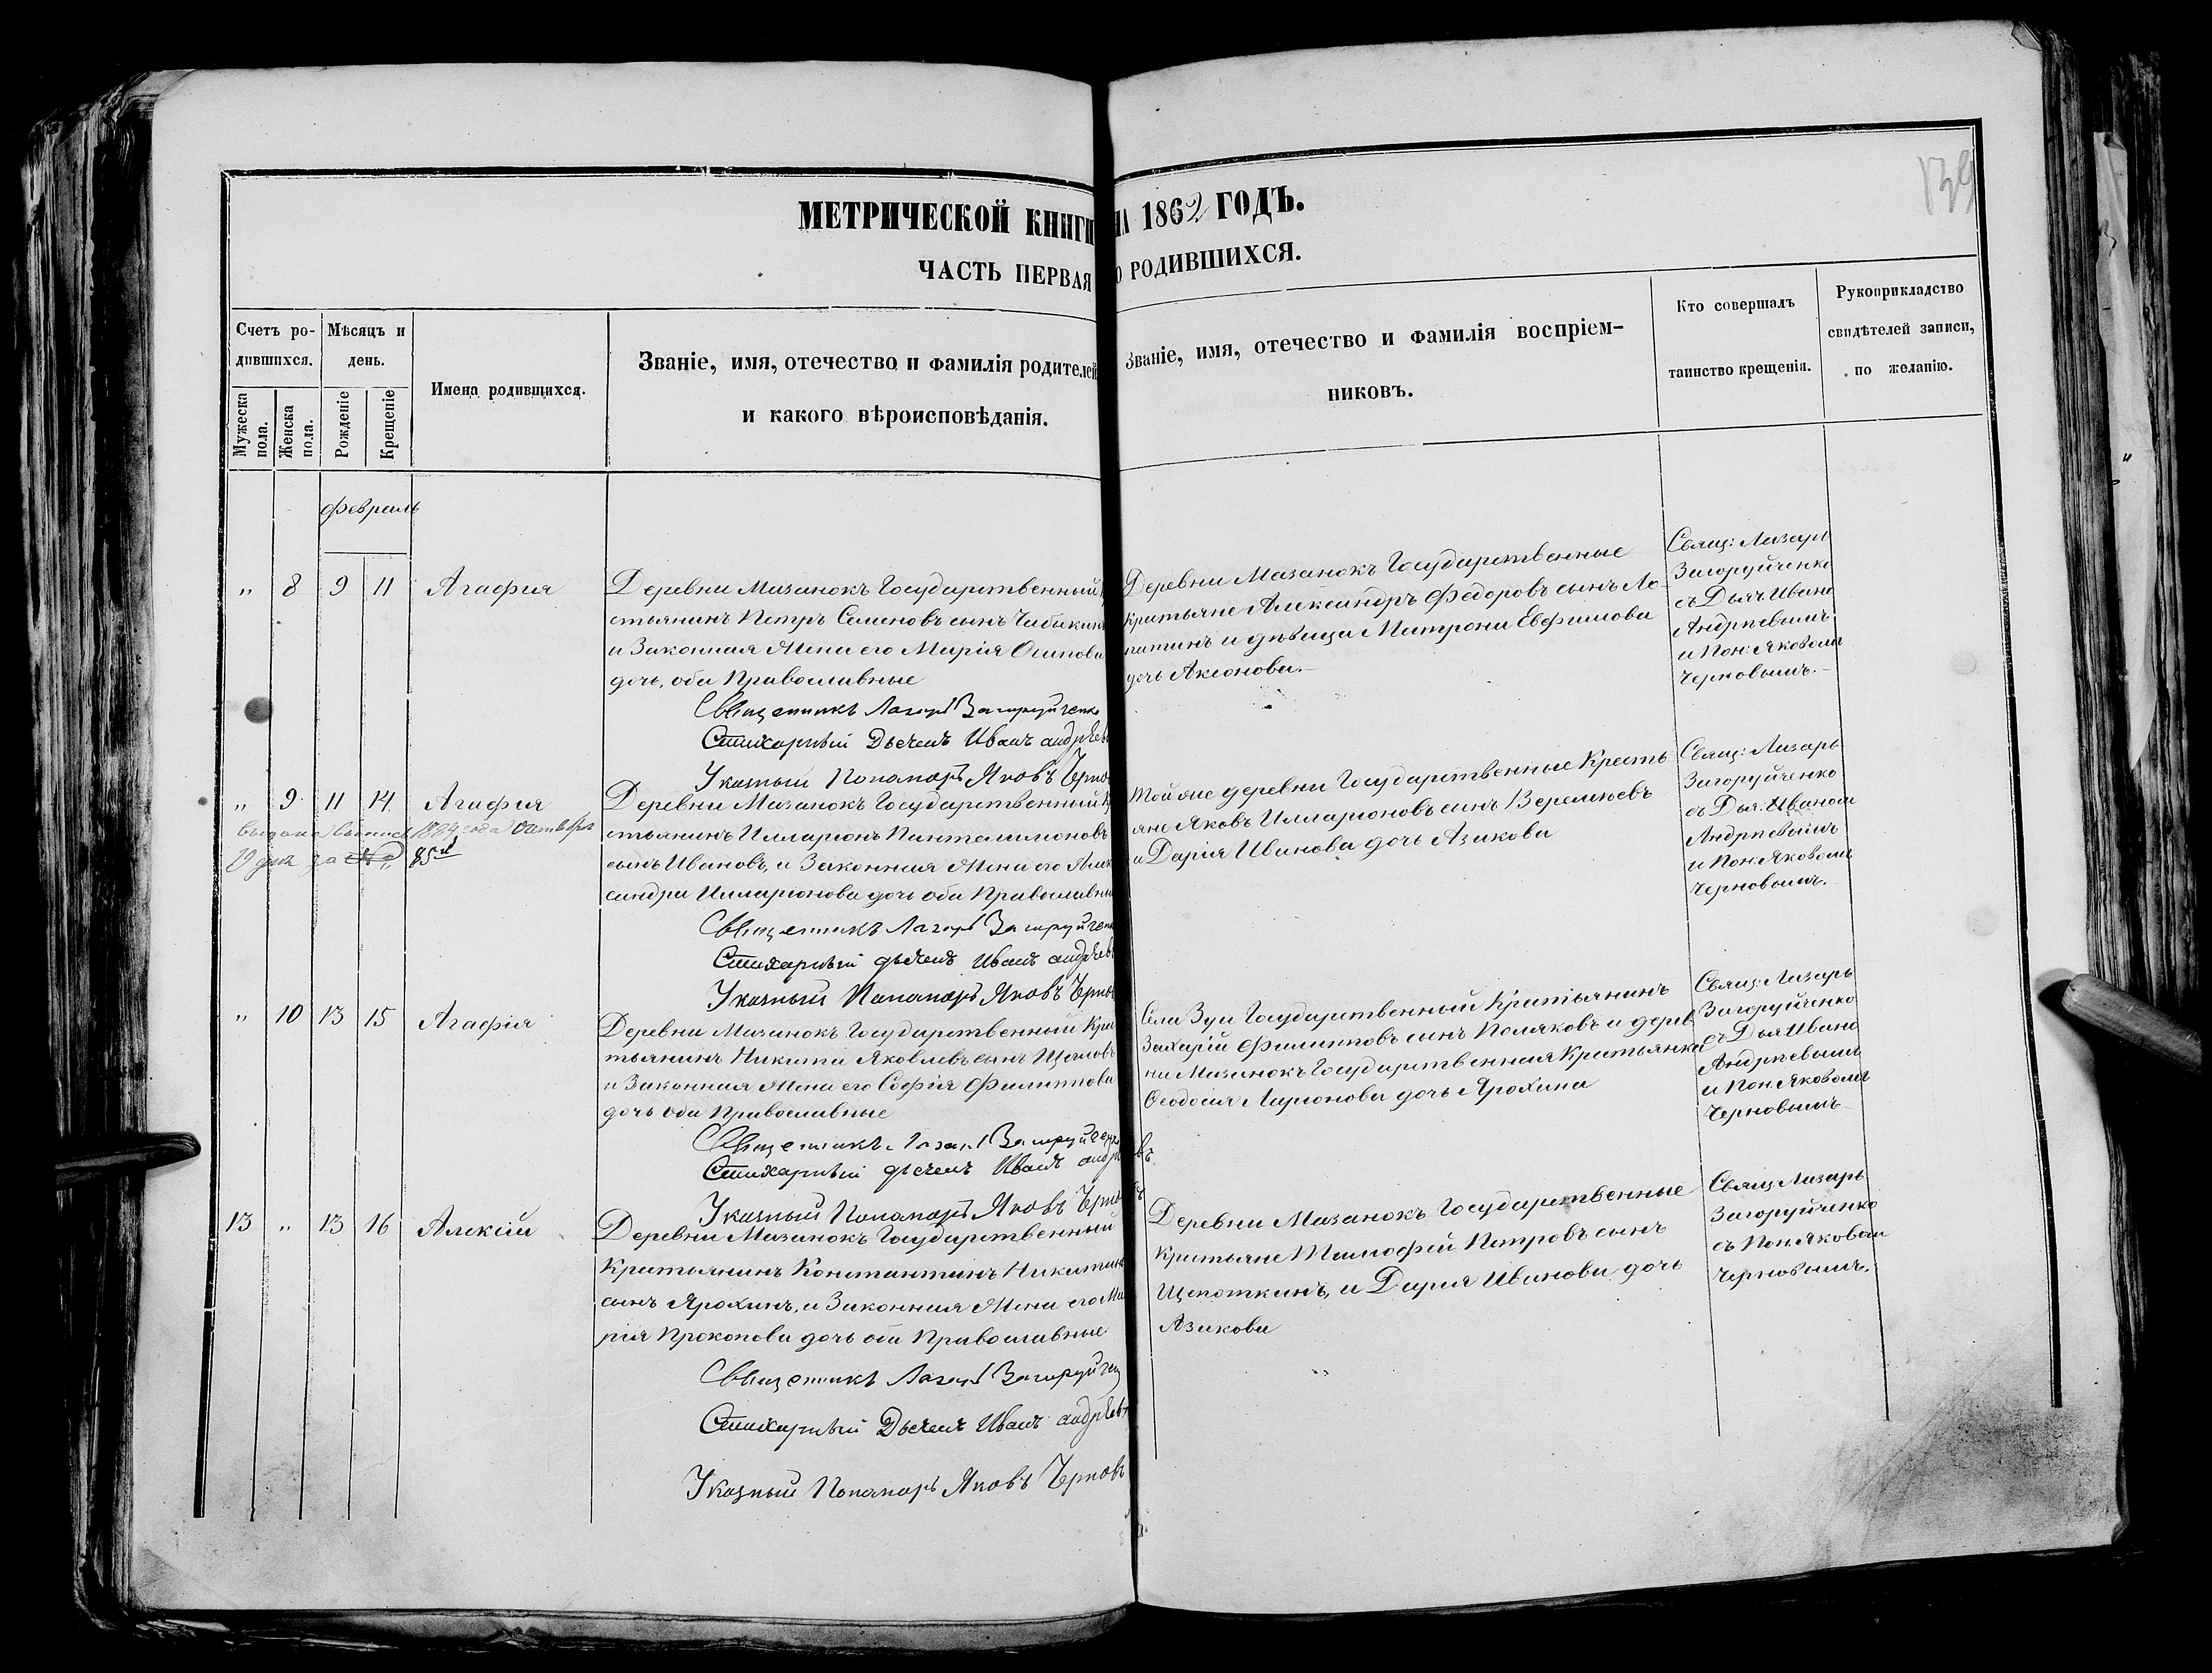 139
МЕТРИЧЕСКОЙ КНИГИ НА 1862 ГОДЪ.
ЧАСТЬ ПЕРВАЯ О РОДИВШИХСЯ.
Счетъ ро-
дившихся.
Мужеска пола.
Женска пола.
Мѣсяцъ и
день.
Рожденіе
Крещеніе
Имена родившихся.
Званіе, имя, отечество и фамилія родителей
и какого вѣроисповѣданія.
Званіе, имя, отечество и фамилія воспріем-
никовъ.
Кто совершалъ
таинство крещенія.
Рукоприкладство
свидѣтелей записи,
по желанію.
Февраль
" 8 9 11 Агафия
Деревни Мазанокъ Государственный
стьянинъ Петръ Семеновъ сынъ Чабыкинъ
и Законная Жена его Марія Осипова
дочь, оба Православные
Священникъ Лазарь Загоруйченко
Стихарный Дьячекъ Иванъ Андрѣевъ
Указный Пономарь Яковъ Черно
Деревни Мазанокъ Государственные
Кристьяне Александръ Федоровъ сынъ Ло-
патинъ и дѣвица Матрона Евфимова
дочь Аксонова.–
Свящ: Лазарь
Загоруйченко
съ Дьяч Ивано
Андрѣевымъ
и Пон: Яковомъ
Черновымъ.–
" 9 11 14 Агафия
Выдана выпись 1884 года Октября
19 дня за № 85й
Деревни Мазанокъ Государственный К
стьянинъ Илларионъ Пантелимоновъ
сынъ Ивановъ, и Законная Жена его Алек
сандра Илларионова дочь оба Православны
Священникъ Лазарь Загоруйчен
Стихарный дьячекъ Иванъ Андрѣев
Указный Пономарь Яковъ Чернов
Той же деревни Государственные Кресть
яне Яковъ Илларионовъ сынъ Веремѣевъ
и Дарія Иванова дочь Азикова
Свящ: Лазарь
Загоруйченко
съ Дья: Иваном
Андрѣевымъ
и Пон: Яковомъ
Черновымъ.–
" 10 13 15 Агафія
Деревни Мазанокъ Государственный Кри
тьянинъ Никита Яковлевъ сынъ Щегловъ
и Законная Жена его Софія Филиппова
дочь оба Православные
Священникъ Лазарь Загоруйченко
Стихарный дьячекъ Иванъ Андрѣевъ
Указный Пономарь Яковъ Черновъ
Села Зуи Государственный Кристьянинъ
Захарій Филипповъ сынъ Поляковъ и дерев
ни Мазанокъ Государственная Кристьянка
Феодосия Ларионова дочь Ярохина
Свящ: Лазарь
Загоруйченко
съ Дья Ивано
Андрѣевымъ
и Пон. Яковомъ
Черновымъ–
13 " 13 16 Алексій
Деревни Мазанокъ Государственный
Кристьянинъ Константинъ Никитинъ
сынъ Ярохинъ, и Законная Жена его Ма
рія Прокопова дочь оба Православные
Священникъ Лазарь Загоруйчен
Стихарный Дьячекъ Иванъ Андрѣевъ
Указный Пономарь Яковъ Черновъ
Деревни Мазанокъ Государственные
Кристьяне Тимофій Петровъ сынъ
Щепоткинъ, и Дария Иванова дочь
Азикова
Свящ Лазарь
Загоруйченко
съ Пон. Яковом
Черновымъ.